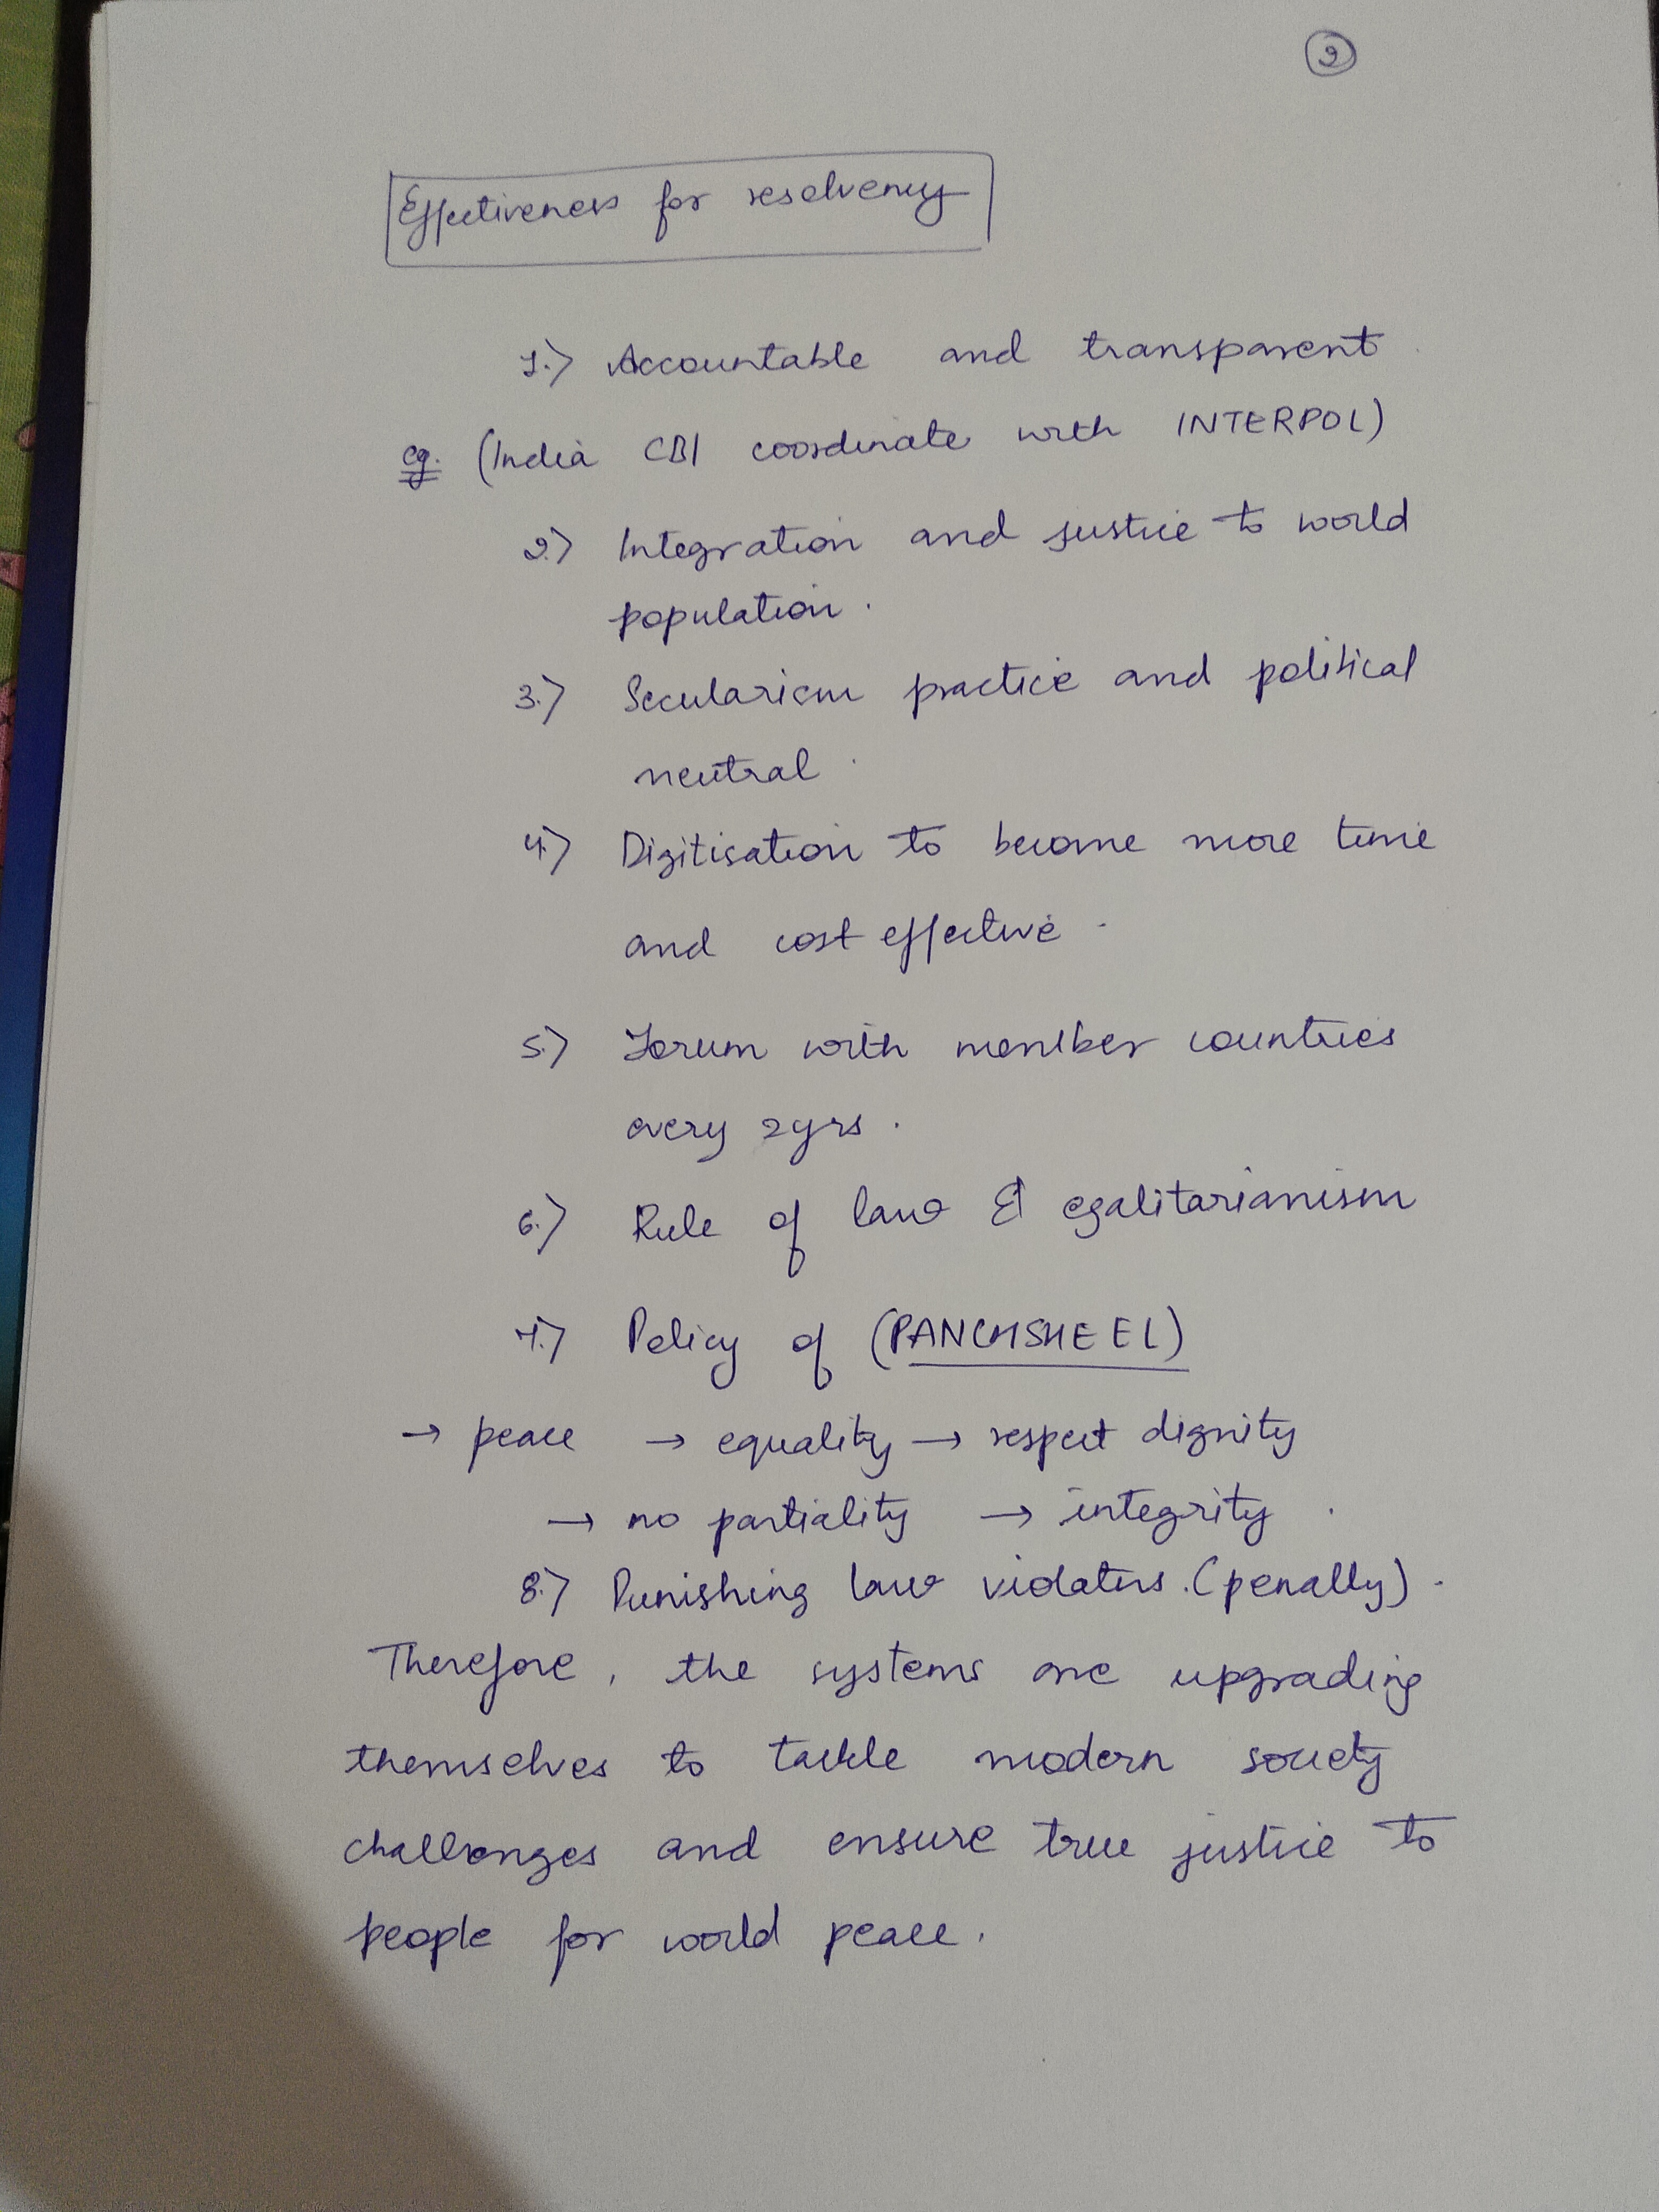 2
Effectiveness for resolvency
1.) Accountable and transparent
eg. (India CBI coordinate with INTERPOL)
2.) Integration and justice to world
population.
3.) Secularism practice and political
neutral.
4.) Digitisation to become more time
and cost effective.
5.) Forum with member countries
every 2yrs.
6.) Rule of law & egalitarianism
7.) Policy of (PANCHSHEEL)
→ peace → equality → respect dignity
→ no partiality → integrity.
8.) Punishing law violators. (penally).
Therefore, the systems are upgrading
themselves to tackle modern society
challenges and ensure true justice to
people for world peace.